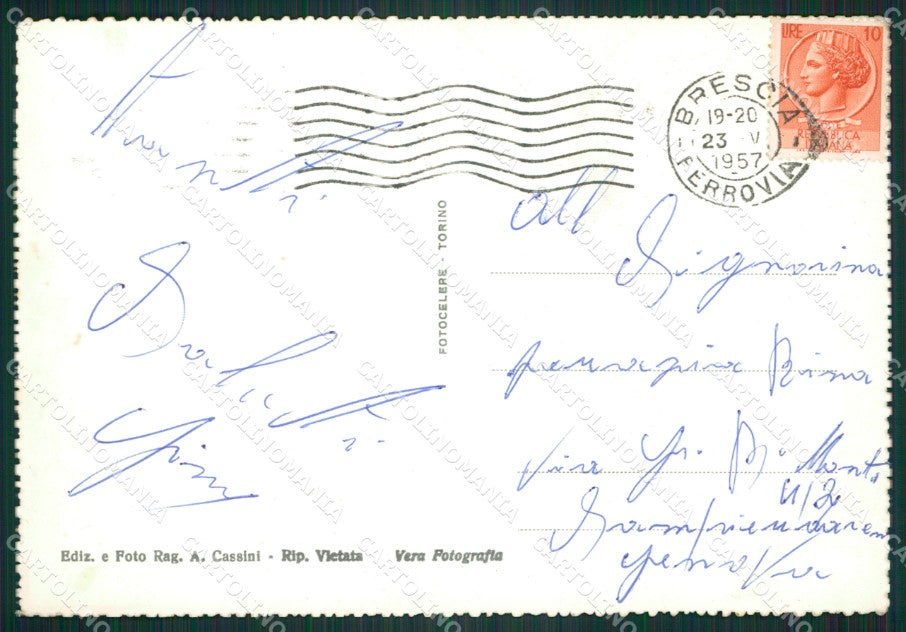 LIRE 10
REPUBBLICA
ITALIANA
BRESCIA
19-20
23 V
1957
FERROVIA
Saluti
all
Signorina
Rina
Via
4/2
Sampierdarena
Genova
FOTOCELERE - TORINO
Ediz. e Foto Rag. A. Cassini - Rip. Vietata Vera Fotografia
CARTOLINOMANIA